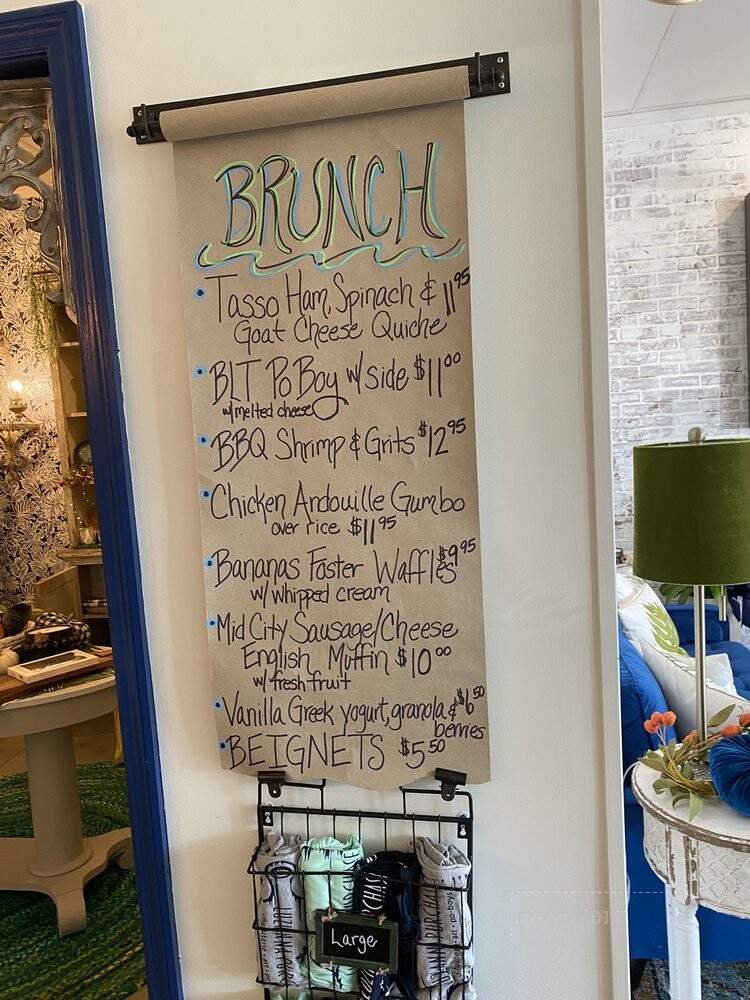 BRUNCH
• Tasso Ham, Spinach & 11 95
Goat Cheese Quiche
• BLT Po Boy w/ side $11 00
w/ melted cheese
• BBQ Shrimp & Grits $12 95
• Chicken Andouille Gumbo
over rice $11 95
• Bananas Foster Waffles $9 95
w/ whipped cream
• Mid City Sausage/Cheese
English Muffin $10 00
w/ fresh fruit
• Vanilla Greek yogurt, granola & $6 50
berries
• BEIGNETS $5 50
Large